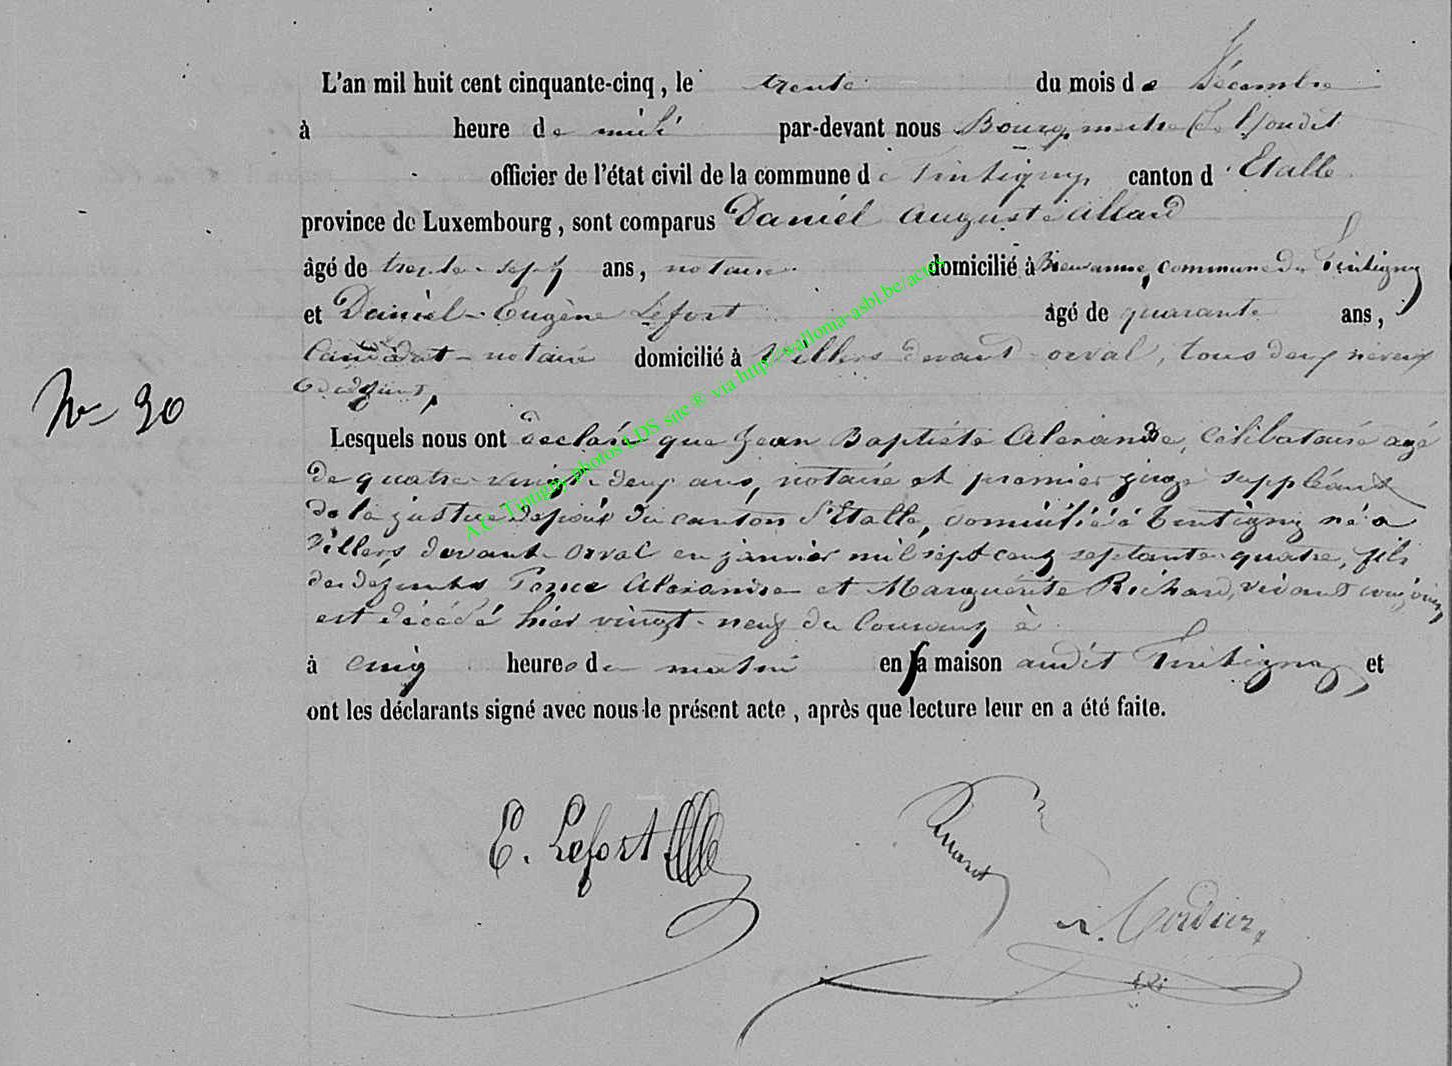 L'an mil huit cent cinquante-cinq, le trente du mois de Décembre
à heure de midi par-devant nous Bourgmestre
officier de l'état civil de la commune de Tintigny, canton d'Etalle
province de Luxembourg, sont comparus Daniel Auguste Allard
âgé de trente-sept ans, notaire domicilié à commune de Tintigny
et Daniel-Eugène Lefort âgé de quarante ans,
Candidat-notaire domicilié à Villers devant orval, tous deux neveux
No 30
Lesquels nous ont déclaré que Jean Baptiste Alexandre, célibataire agé
de quatre-vingt-deux ans, notaire et premier juge suppléant
de la justice de paix du canton d'Etalle, domicilié à Tintigny né à
Villers devant Orval en janvier mil sept cent septante-quatre, fils
des défunts Alexandre et Marguerite Richard, vivant conjoints,
est décédé hier vingt-neuf du Courant à
à cinq heures du matin en sa maison audit Tintigny, et
ont les déclarants signé avec nous le présent acte, après que lecture leur en a été faite.
E. Lefort
A.C. Tintigny photos LDS site ® via http://wallonia-asbl.be/actes